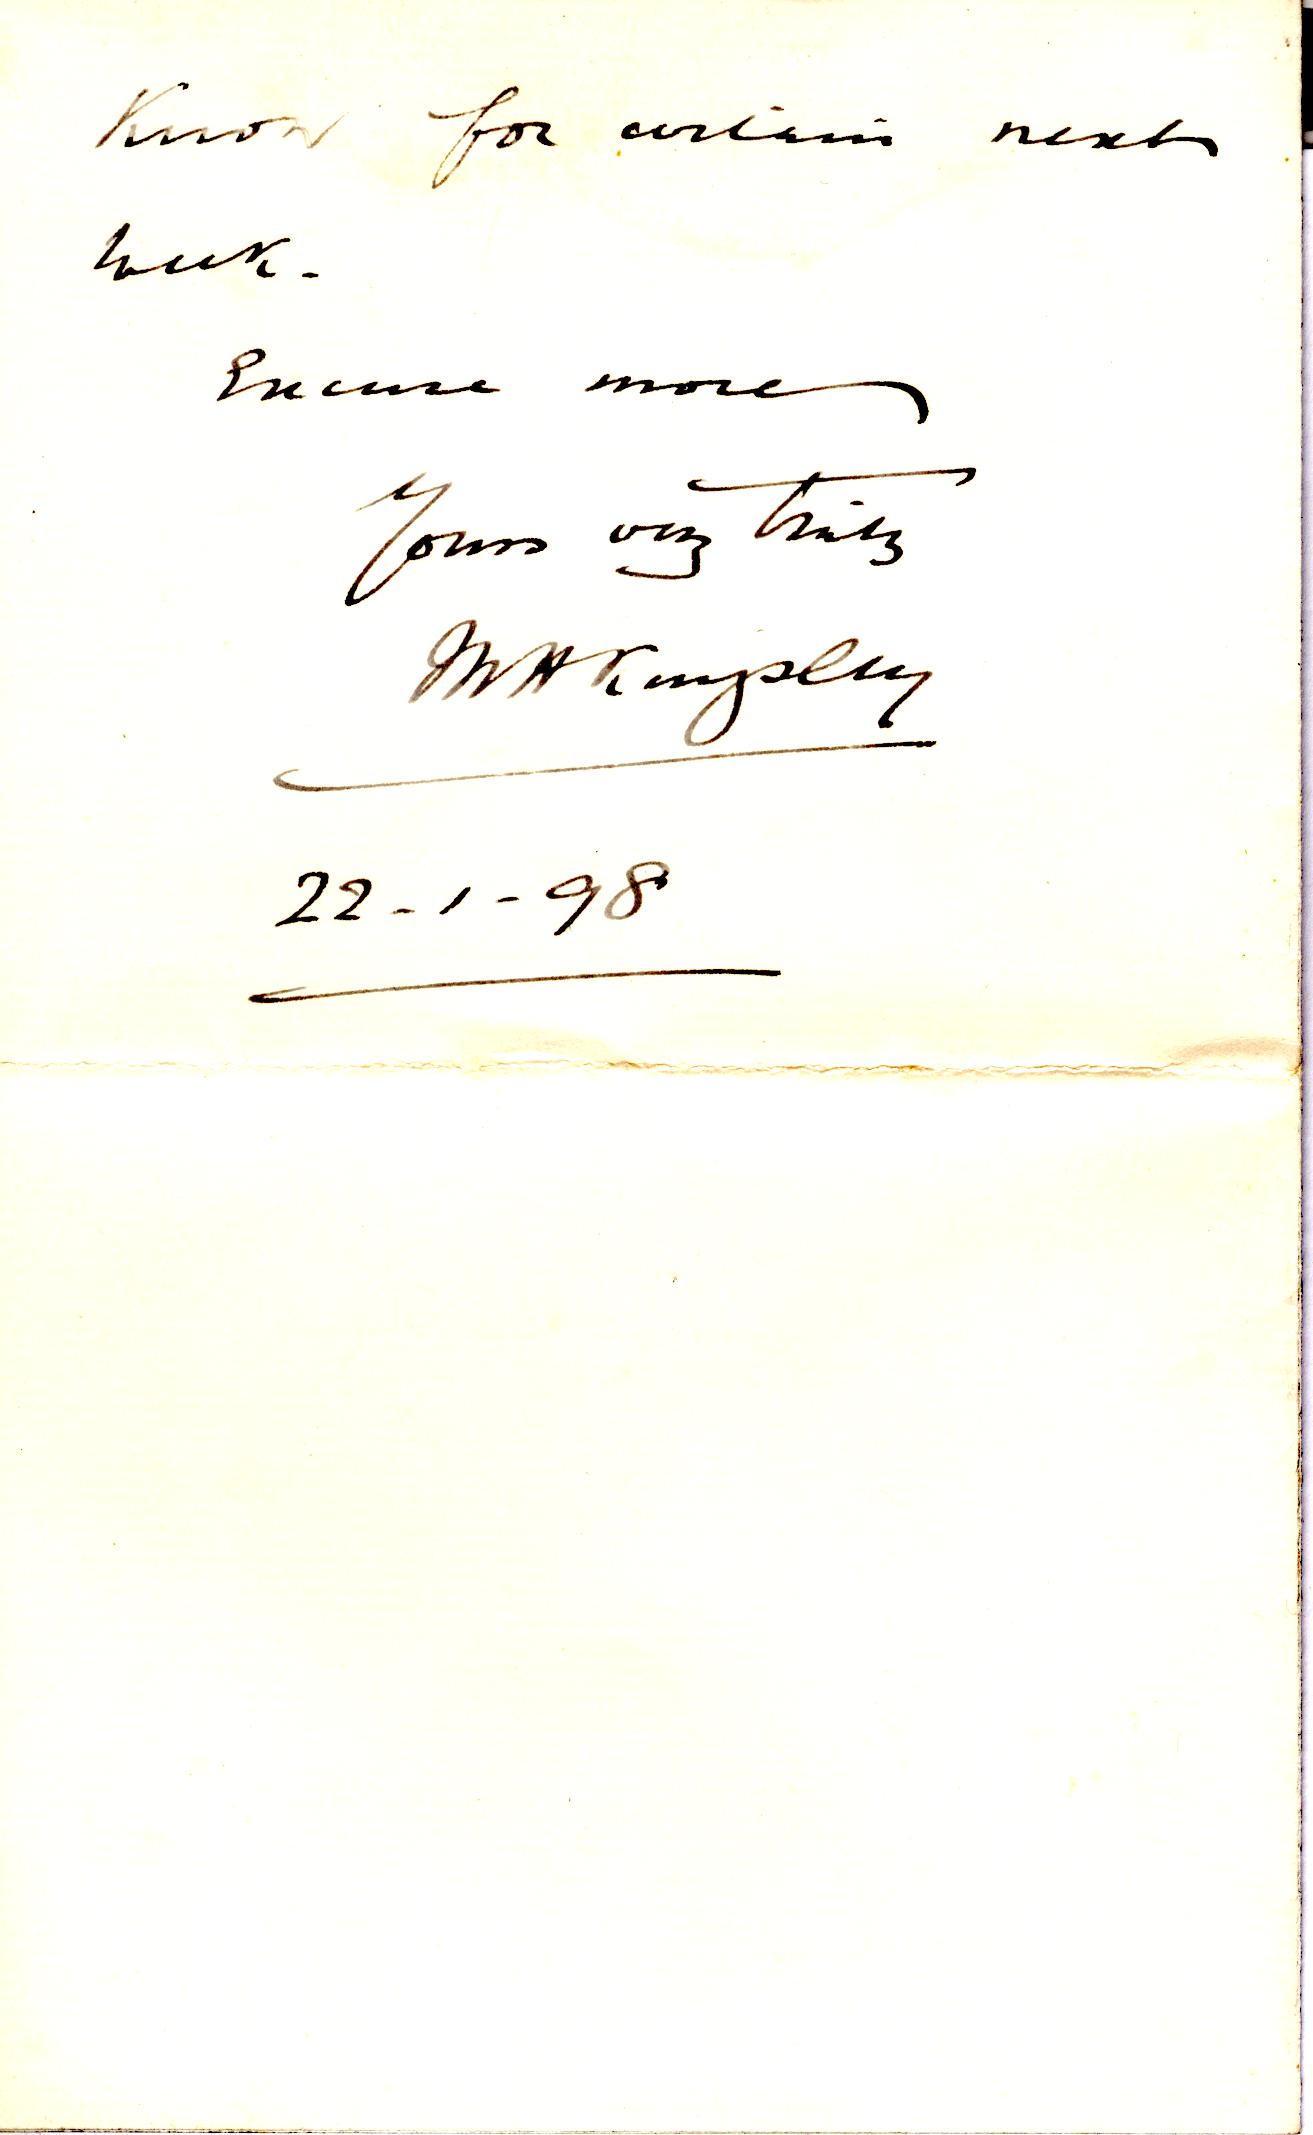 Know for certain next
week.
Excuse more
Yours very truly
MHKingsley
22-1-98